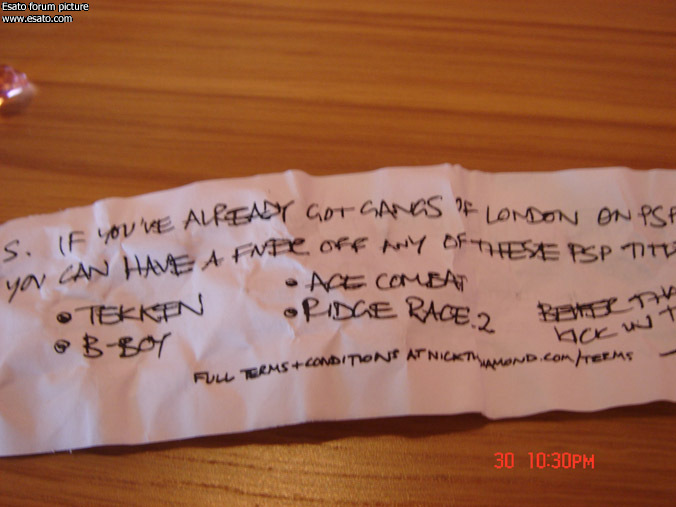 Esato forum picture
www.esato.com
S. IF YOU'VE ALREADY GOT GANGS OF LONDON ON PSP
YOU CAN HAVE A FIVER OFF ANY OF THESE PSP TITL
• TEKKEN
• ACE COMBAT
• B-BOY
• RIDGE RACE.2
KICK IN T
FULL TERMS + CONDITIONS AT /TERMS
30 10:30PM